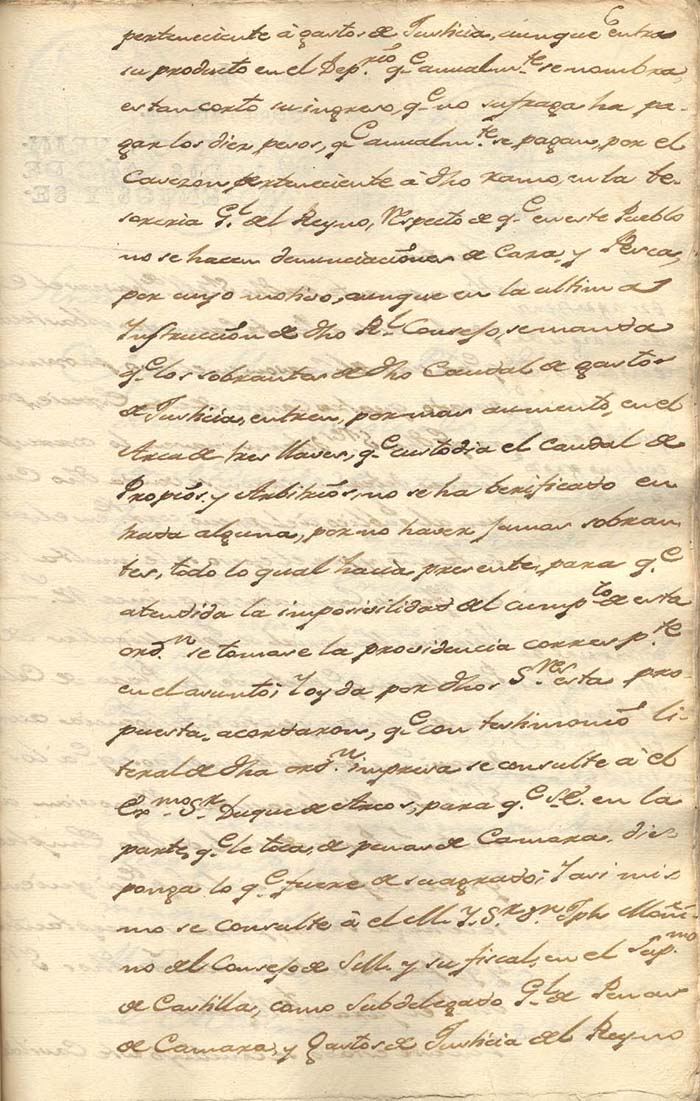 perteneciente â gastos de Justicia, aunque entra
su producto en el Dep.rio q.e anualm.te se nombra,
es tan corto su ingreso, q.e no sufraga ha pa-
gar los diez pesos, q.e anualm.te se pagan, por el
Caveron, perteneciente â dho ramo, en la te-
soreria G.l del Reyno, respecto de q.e en este Pueblo
no se hacen denunciaciones de Caza, y Pesca,
por cuyo motivo, aunque en la ultima
Instruccion de dho R.l Consejo, se manda
q.e los sobrantes de dho Caudal de gastos
de Justicia, entren, por mas aumento, en el
Arca de tres llaves, q.e custodia el caudal de
Propios, y Arbitrios, no se ha berificado en-
trada alguna, por no haver jamas sobran-
tes, todo lo qual hacia presente, para q.e
atendida la imposivilidad del cump.to de esta
ord.n se tomase la providencia corresp.te
en el asunto; Y oyda por dhos S.res esta pro-
puesta, acordaron, q.e con testimonio li-
teral de dha ord.n impresa se consulte â el
Ex.mo S.r Duque de Arcos, para q.e S.E. en la
parte, q.e le toca, de penas de Camara, dis-
ponga lo q.e fuere de su agrado; Y asi mis-
mo se consulte â el M. Y. S.r D.n Jph Moñi-
no del Consejo de S.M. y su fiscal, en el Sup.mo
de Castilla, como Subdelegado G.l de Penas
de Camara, y Gastos de Justicia del Reyno